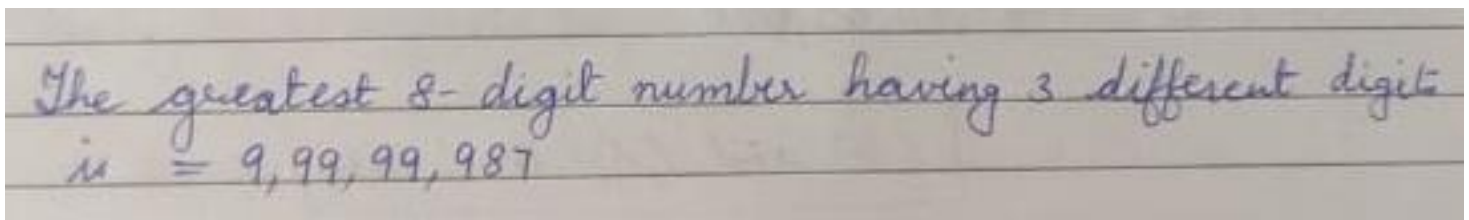 The greatest 8-digit number having 3 different digits
is = 9,99,99,987